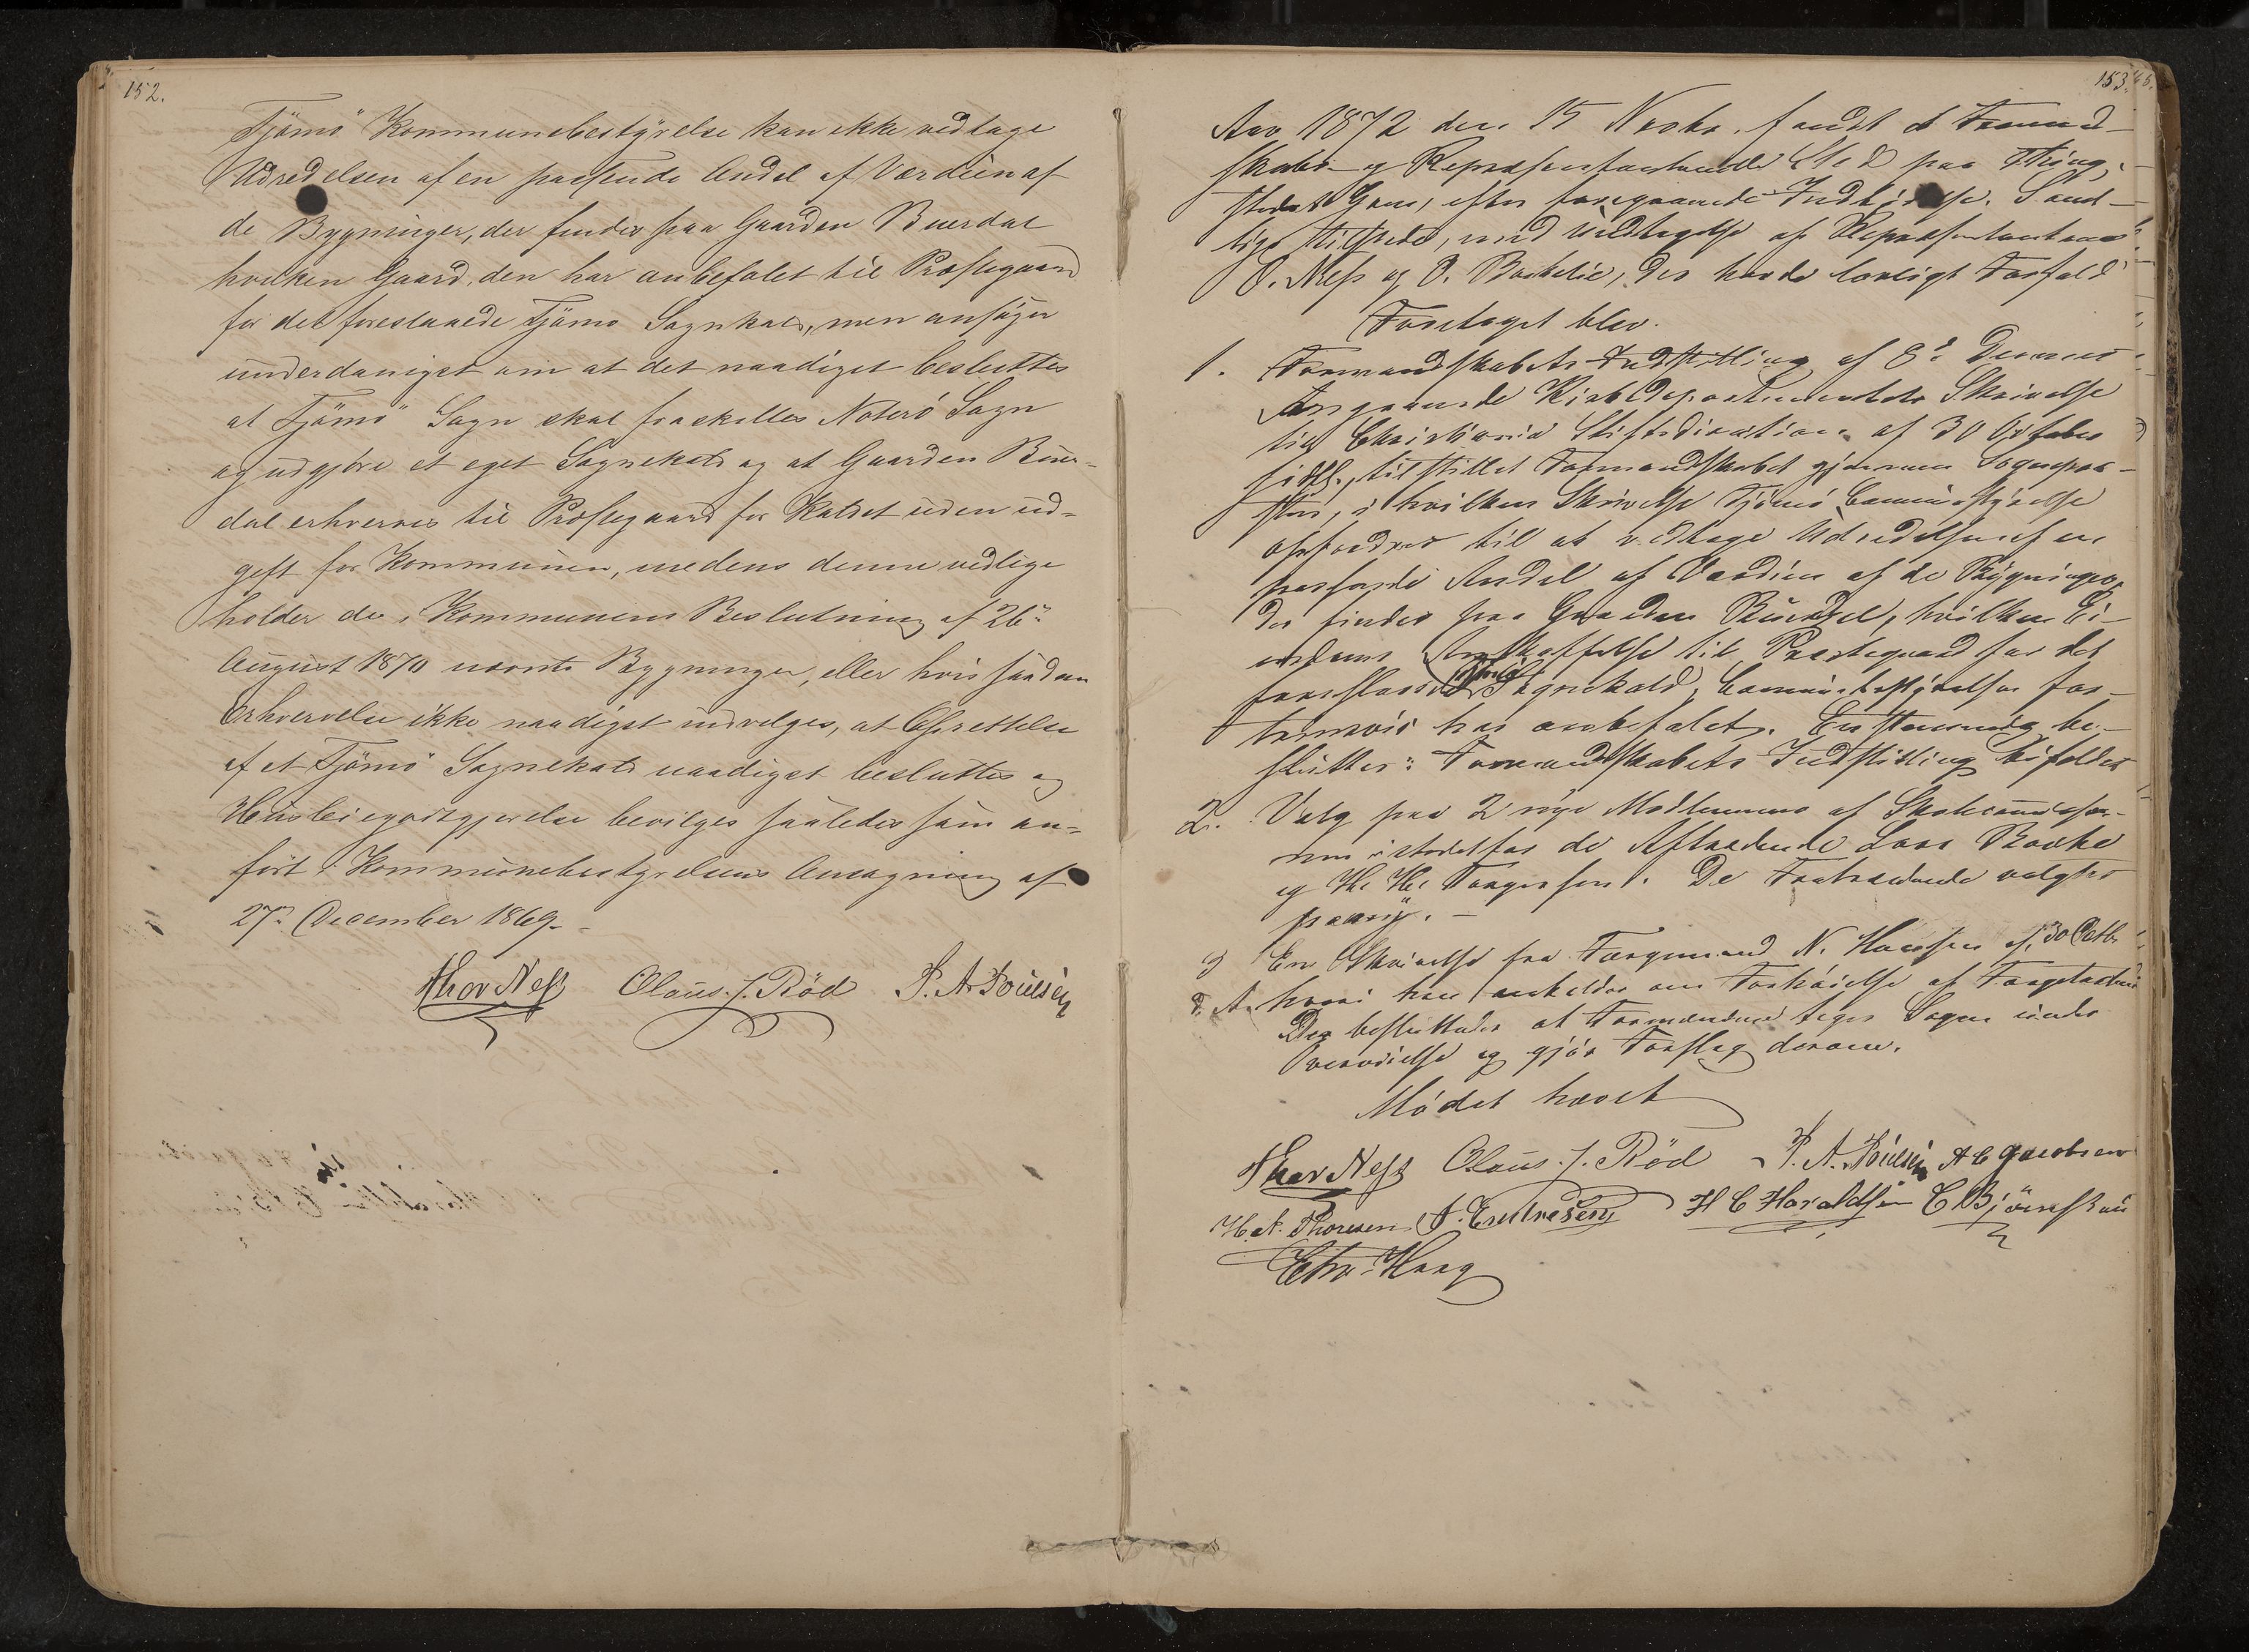 152.
Tjömö Kommunebestyrelse kan ikke vedtage
Udredelsen af en passende Andel af Værdien af
de Bygninger, der findes paa Gaarden Buerdal
hvilken Gaard, den har anbefalet til Præstegaard
for det foreslaaede Tjömö Sognekald, men ansöger
underdanigst om at det naadigst besluttes
at Tjömö Sogn skal fraskilles Noterö Sogn
og udgjöre et eget Sognekald og at Gaarden Buer-
dal erhverves til Præstegaard for Kaldet uden ud-
gift for Kommunen, medens denne vedlige
holder de i Kommunens Beslutning af 26de
August 1870 nævnte Bygninger, eller hvis saadan
Erhvervelse ikke naadigst indvilges, at Oprettelse
af et Tjömö Sognekald naadigst besluttes og
Husleiegodtgjørelse bevilges saaledes som an-
fört i Kommunebestyrelsens Ansögning af
27de December 1869.
Thor Ness Olaus J. Röd P. A. Poulsen
153.
Aar 1872 den 15 Novbr. fandt et Formand-
skabs- og Repræsentantmöde Sted paa Thing-
stedet Gaun, efter foregaaende Indbydelse. Samt-
lige tilstede, med Undtagelse af Repræsentanterne
O. Ness og O. Bakelie, der havde lovligt Forfald
Foretaget blev.
1. Formandskabets Indstilling af 8de Dennes
Angaaende Kirkedepartementets Skrivelse
til Christiania Stiftsdirection af 30 October
sidstl., tilstillet Formandskabet gjennem Sognepræ-
sten, i hvilken Skrivelse Tjömö Communestyrelse
opfordres til at vedtage Udredelsen af en
passende Andel af Værdien af de Bygninger,
der findes paa Gaarden Buerdal, hvilken Ei-
endoms Anskaffelse til Præstegaard for det
foreslaaede Sognekald, Communebestyrelsen for-
trinsvis har anbefalet. Enstemmig be-
sluttes: Formandskabets Indstilling bifaldes
2. Valg paa 2 nye Medlemmer af Skolecommission-
nen istedetfor de Aftrædende Lars Bakke
og H. H. Thorgersen. De Fratrædende valgtes
paany. –
3 En Skrivelse fra Færgemand N. Hansen af 30 Octbr
d. A. hvori han anholder om Forhöielse af Færgetaxten
Der besluttedes at Formændene tager Sagen under
Overveielse og gjör Forslag derom.
Mödet hævet
Thor Ness Olaus. J. Röd P. A. Poulsen A C Jacobsen
H. A. Thoresen A. Endresen H C Haraldsen C Björnskau
Ehr. Haag